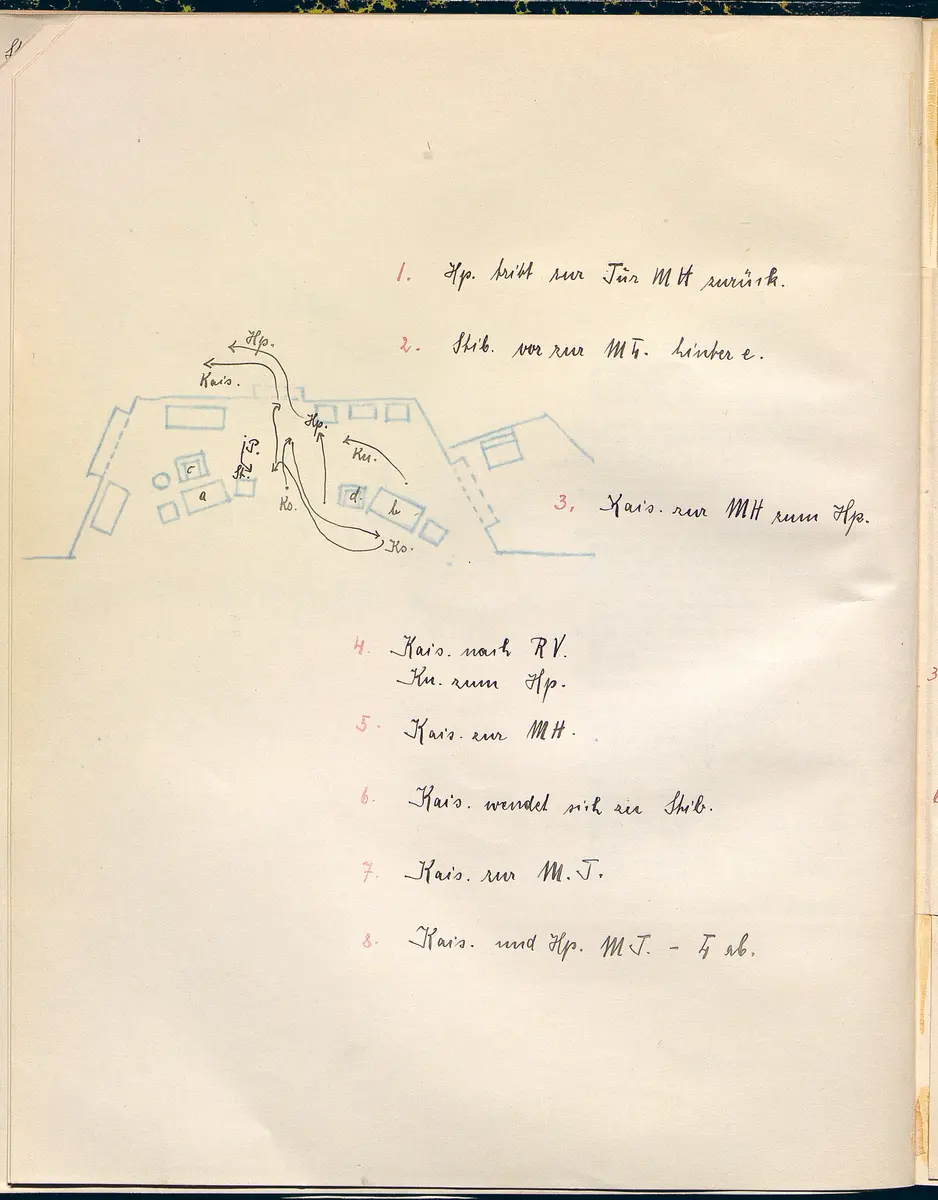 1. Hp. tritt zur Tür MH zurück.
2. Stib. vor zur ML. hinter c.
Hp.
Kais.
Hp.
P.
Kn.
St.
c
a
d.
b
Ko.
Ko.
3. Kais. zur MH zum Hp.
4. Kais. nach RV.
Kn. zum Hp.
5. Kais. zur MH.
6. Kais. wendet sich zu Stib.
7. Kais. zur M.T.
8. Kais. und Hp. M.T. - L ab.